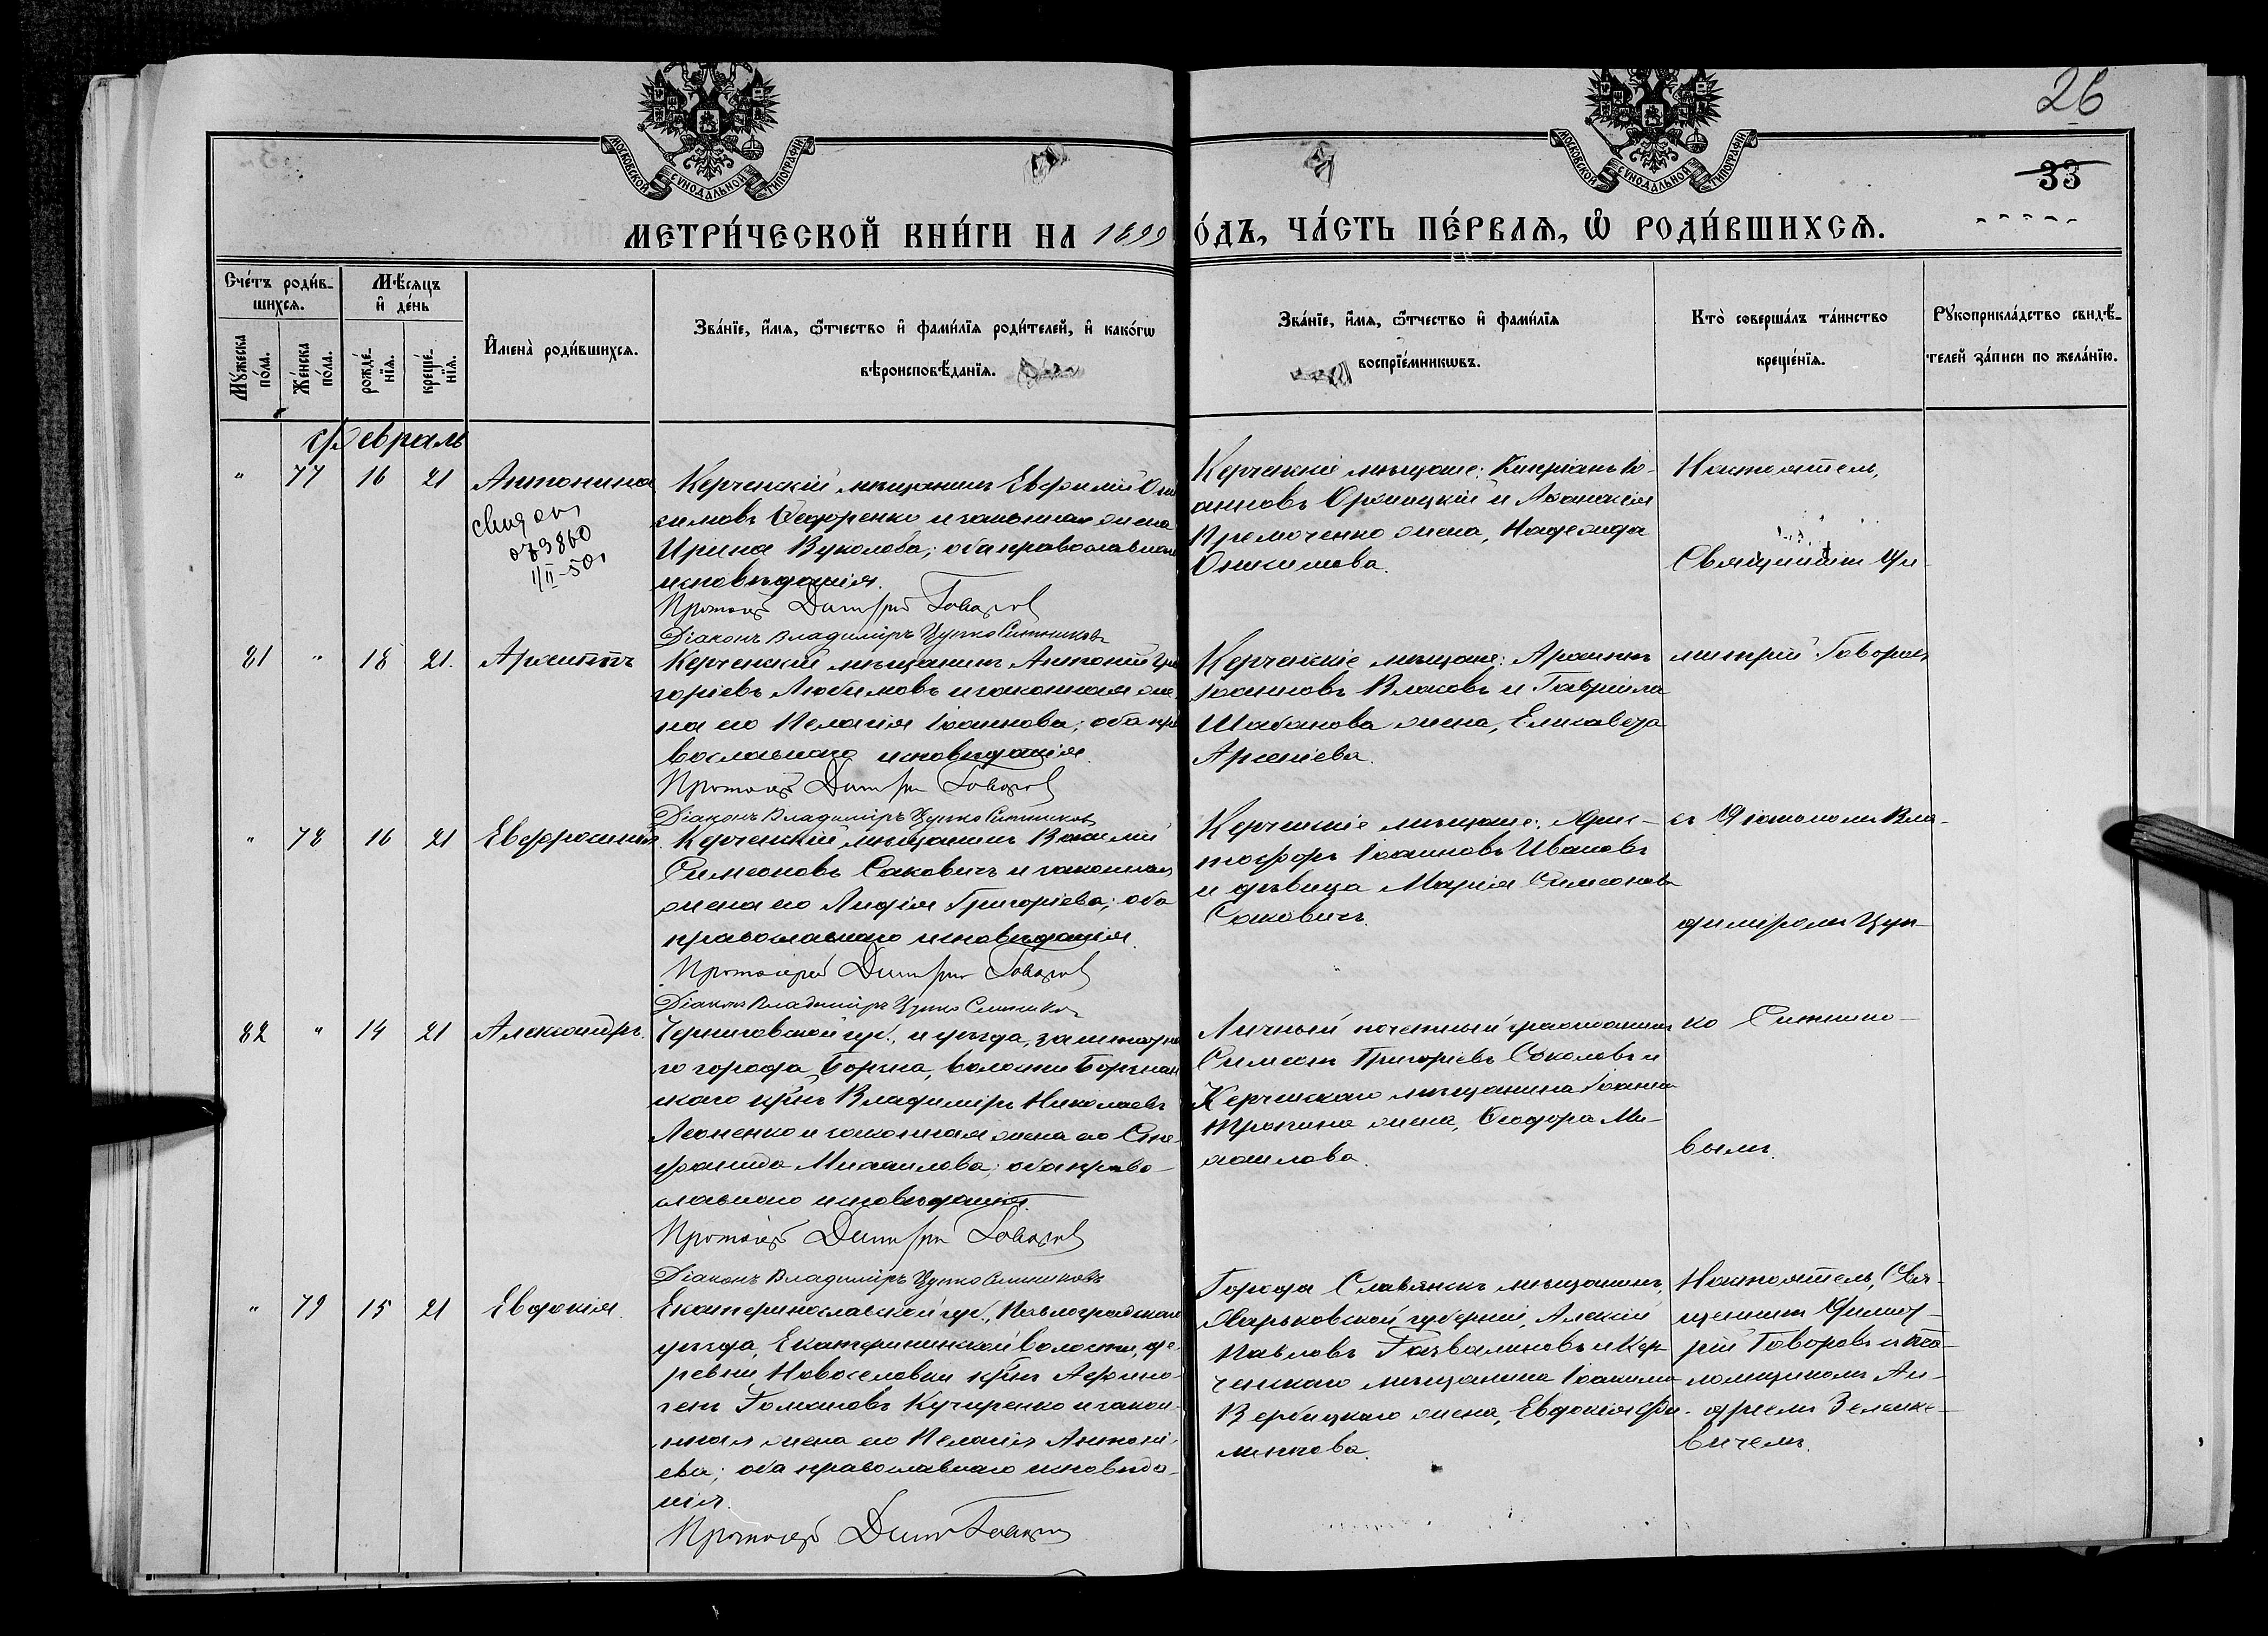 26
33
МОСКОВСКОЙ СѴНОДАЛЬНОЙ ТИПОГРАФІИ
МОСКОВСКОЙ СѴНОДАЛЬНОЙ ТИПОГРАФІИ
МЕТРИ́ЧЕСКОЙ КНИ́ГИ НА 1899
О́ДЪ, ЧА́СТЬ ПЕ́РВАѦ, Ѽ РОДИ́ВШИХСѦ.
Сче́тъ роди́в-
шихсѧ.
Мѣ́сѧцъ
и҆ де́нь
Мꙋ́жеска по́ла.
Же́нска по́ла.
рожде́-
нїѧ.
креще́-
нїѧ.
И҆мена̀ роди́вшихсѧ.
Зва́нїе, и҆́мѧ, ѻ҆́тчество и҆ фами́лїѧ роди́телей, и҆ како́гѡ
вѣроисповѣ́данїѧ.
Зва́нїе, и҆́мѧ, ѻ҆́тчество и҆ фами́лїѧ
воспрїе́мникѡвъ.
Кто̀ соверша́лъ та́инство
креще́нїѧ.
Рꙋкоприкла́дство свидѣ́-
телей за́писи по жела́нїю.
Февраль
" 77 16 21 Антонина
Керченскій мѣщанинъ Евфимій Они
симовъ Ѳедоренко и законная жена
Ирина Вуколова; оба православнаго
исповѣданія.
Протоіер Димитрій Говоров
Діаконъ Владиміръ Цупко Ситниковъ
073860
1/II-50г
Керченскіе мѣщане: Кипріанъ Іо-
анновъ и Аѳанасія
жена, Надежда
Онисимова.
Настоятель,
Священникъ Ди-
81 " 18 21. Архиппъ
Керченскій мѣщанинъ Антоній Гри
горіевъ Любимовъ и законная же
на его Пелагія Іоаннова; оба пра
вославнаго исповѣданія.
Протоіер Димитрій Говоров
Діаконъ Владиміръ Цупко Ситниковъ
Керченскіе мѣщане: Архиппъ
Іоанновъ Власовъ и Гавріила
Шабанова жена, Елисавета
Арсеніева.
митрій Говоровъ
" 78 16 21 Евфросинія.
Керченскій мѣщанинъ Василій
Симеоновъ Саковичъ и законная
жена его Лидія Григоріева; оба
православнаго исповѣданія.
Протоіерей Димитрій Говоров
Діаконъ Владиміръ Цупко Ситников
Керченскіе мѣщане: Хрис-
тофоръ Іоанновъ Ивановъ
и дѣвица Марія Симеонова
Саковичъ.
съ Діакономъ Вла-
диміромъ Цуп-
82 " 14 21 Александръ.
Черниговской губ., и уѣзда, заштатна
го города Борзна, волости Борзнан
скаго крⷭ҇нъ Владиміръ Николаевъ
Леоненко и законная жена его Сте-
фанида Михаилова; оба право-
славнаго исповѣданія.
Протоіер Димитрій Говоров
Діаконъ Владиміръ Цупко Ситниковъ
Личный почетный гражданинъ
Симеонъ Григоріевъ Соколовъ и
Керченскаго мѣщанина Іоанна
Тропина жена, Ѳеодора Ми-
хаилова.
ко Ситнико-
вымъ.
" 79 15 21 Евдокія.
Екатеринославской губ., Павлоградскаго
уѣзда, Екатерининской волости, де-
ревни Новоселовки крнъ Аѳино-
генъ Романовъ Кучиренко и закон-
ная жена его Пелагія Антоні-
ева; оба православнаго исповѣда-
нія.
Протоіер Дим Говоров
Города Славянскъ мѣщанинъ,
Харьковской губерніи, Алексій
Павловъ и Кер-
ченскаго мѣщанина Іоакима
Вербицкаго жена, Евдокія Фи-
липпова.
Настоятель, Свя-
щенникъ Димит-
рій Говоровъ и Пса-
ломщикомъ Ан-
дреемъ Зеленке-
вичемъ.